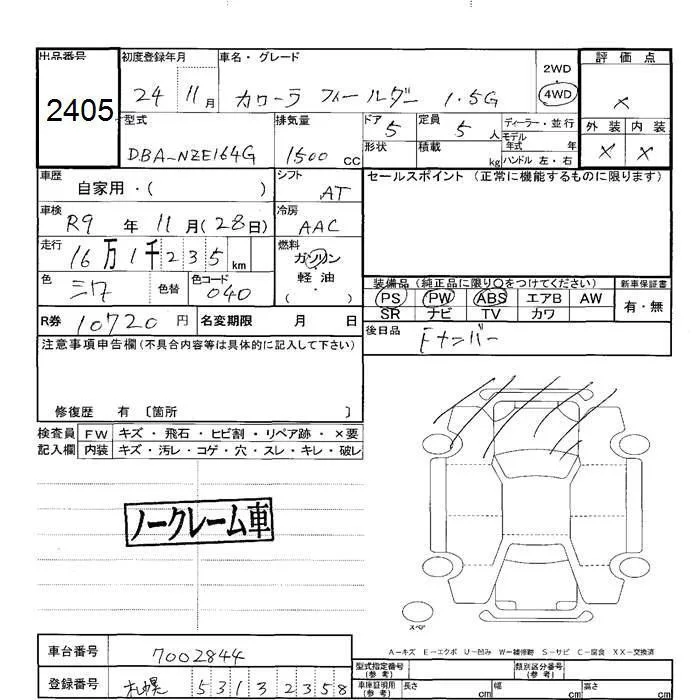 出品番号 初度登録年月 車名・グレード 評価点
2405 24 11月 カローラ フィールダー 1.5G 2WD 4WD ×
型式 排気量 ドア 定員 ディーラー・並行 外装 内装
DBA-NZE164G 1500cc 5 5人 モデル年式 年 × ×
形状 積載 kg ハンドル 左・右
車歴 シフト セールスポイント(正常に機能するものに限ります)
自家用・( ) AT
車検 冷房
R9年 11月(28日) AAC
走行 燃料
16万1千235km ガソリン
軽油
( ・ )
色 色替 色コード 装備品(純正品に限り○をつけてください) 新車保証書
040 PS PW ABS エアB AW 有・無
SR ナビ TV カワ
R券 10720円 名変期限 月 日 後日品
注意事項申告欄(不具合内容等は具体的に記入して下さい)
修復歴 有 〔箇所 〕
検査員 FW キズ・飛石・ヒビ割・リペア跡・×要
記入欄 内装 キズ・汚レ・コゲ・穴・スレ・キレ・破レ
ノークレーム車
スペア
A−キズ E−エクボ U−凹み W−補修跡 S−サビ C−腐食 XX−交換済
車台番号 7002844 型式指定番号(参考) 類別区分番号(参考)
登録番号 札幌 531 3 2358 車庫証明用(参考) 長さ cm 幅 cm 高さ cm